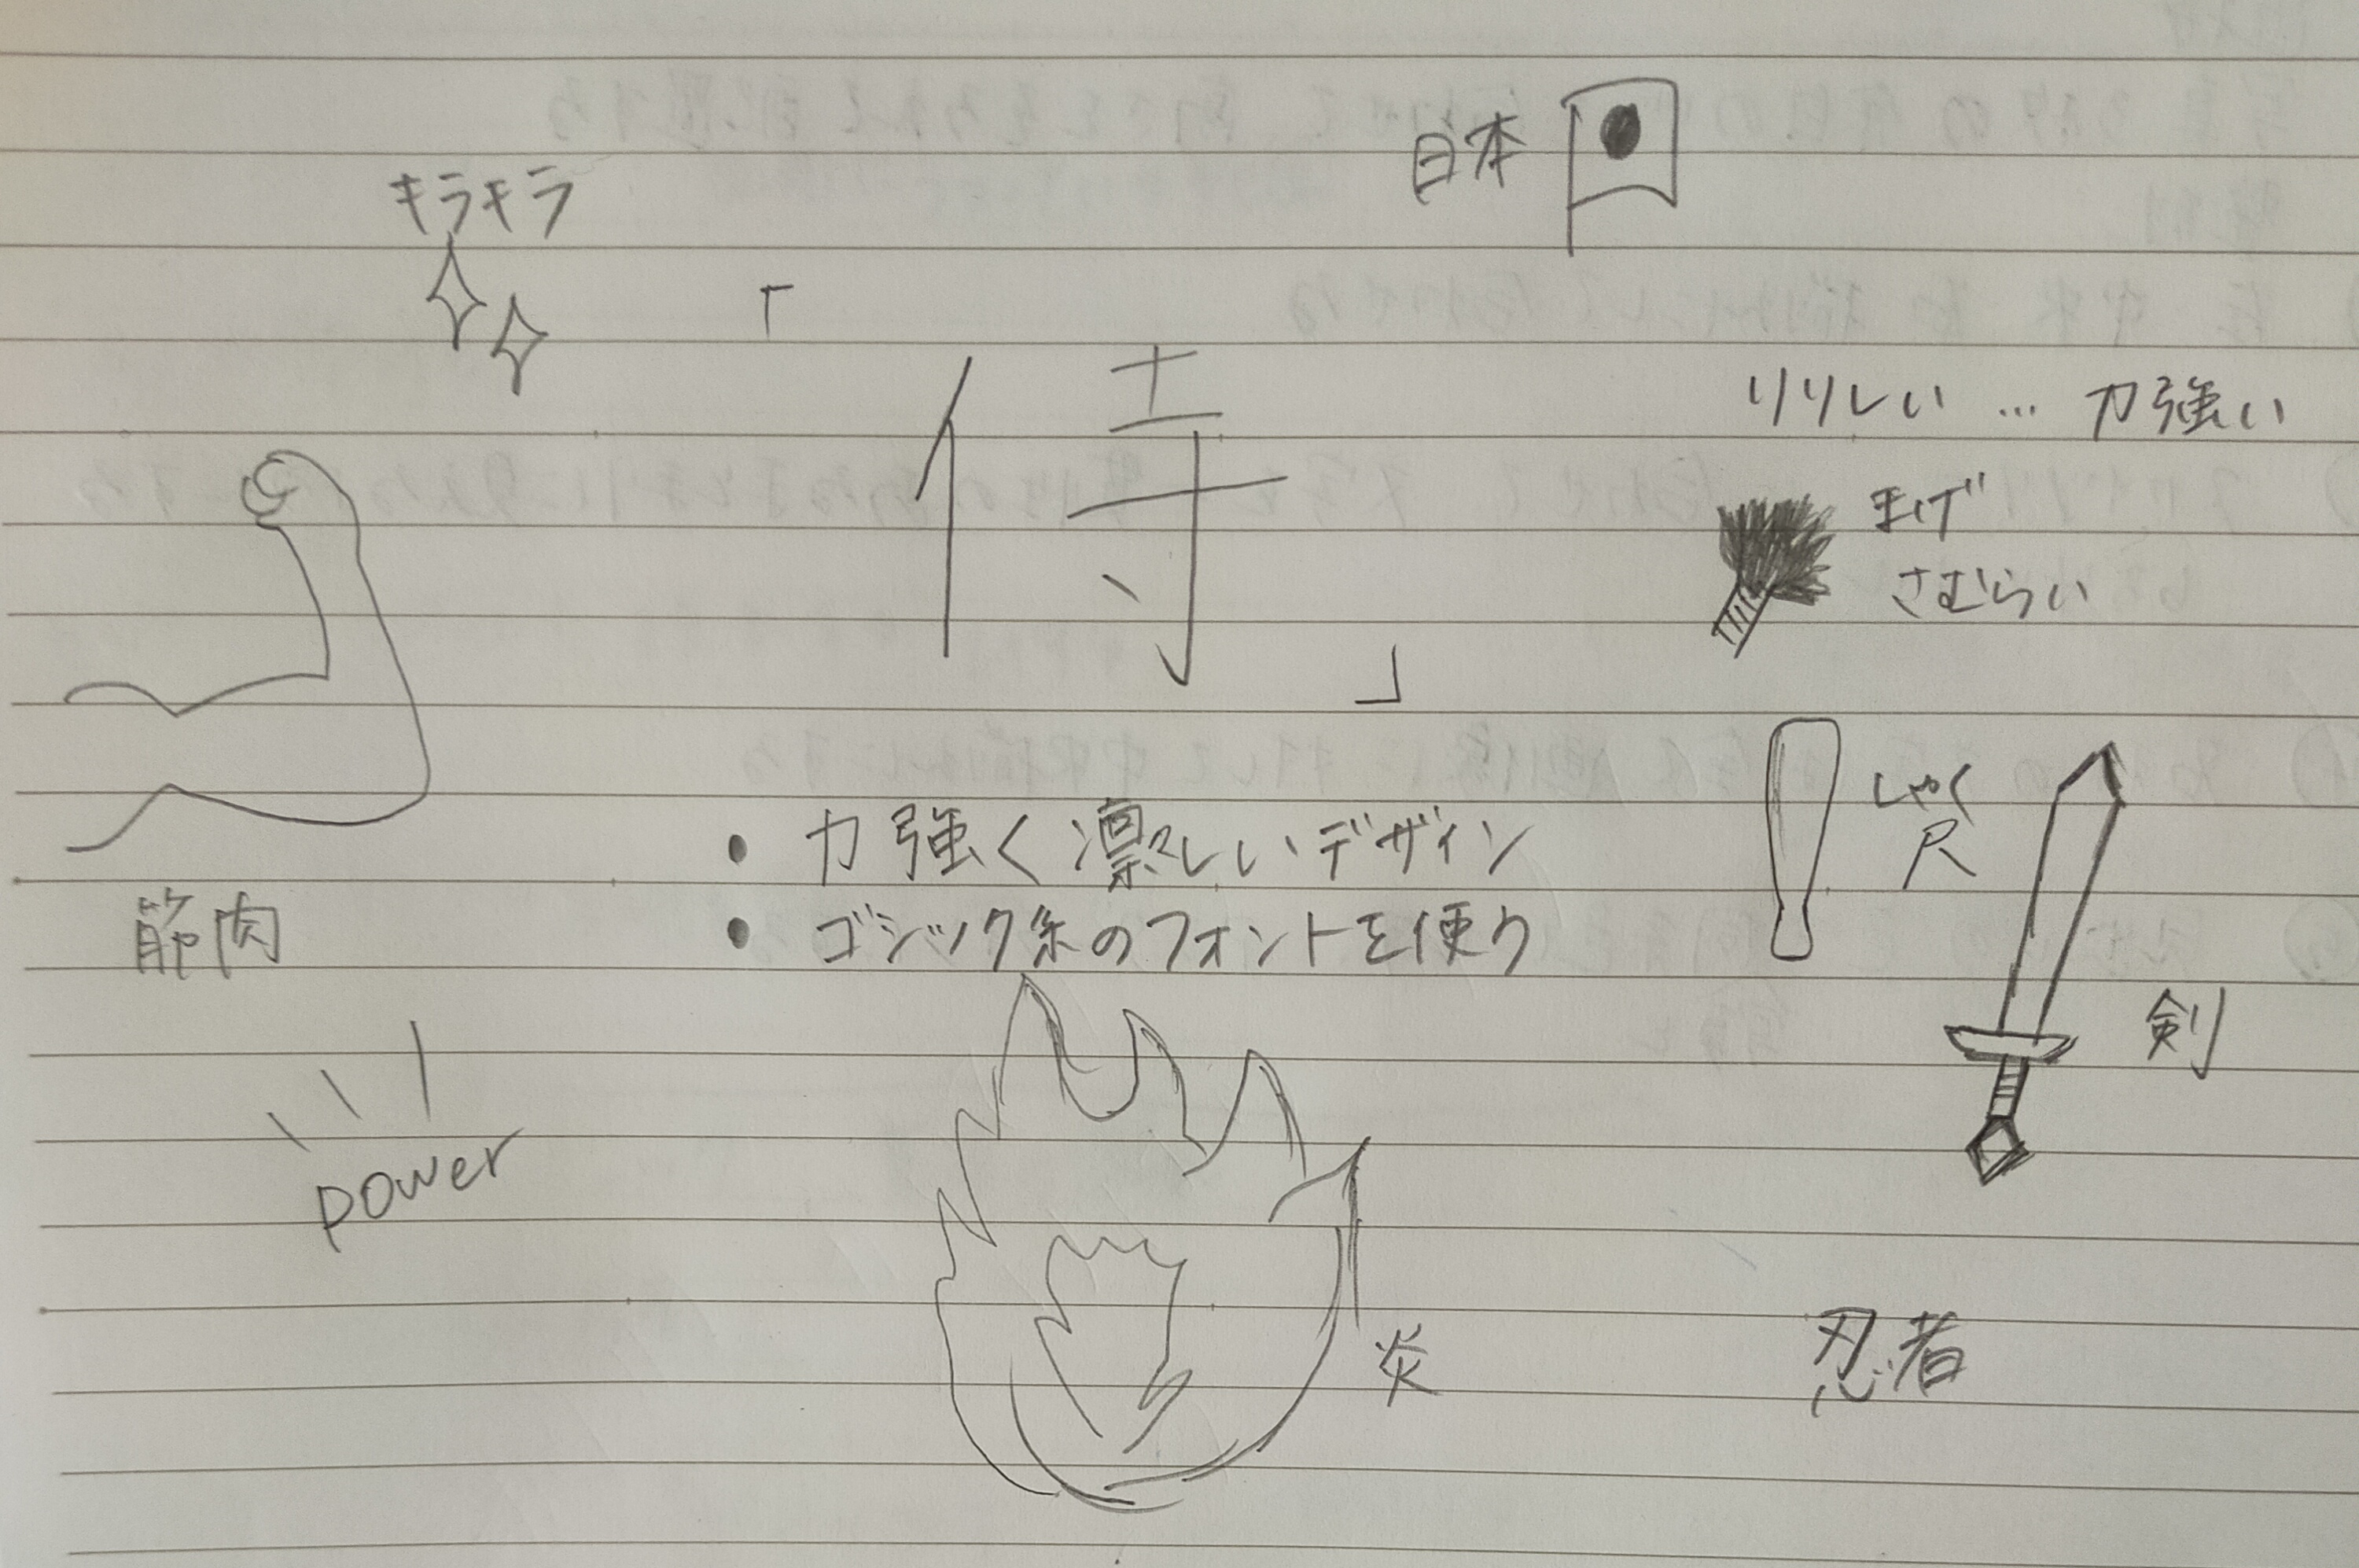 日本
キラキラ
「侍」
りりしい … 力強い
まげ
さむらい
しゃく
尺
・力強く凛しいデザイン
・ゴシック系のフォントを使う
筋肉
剣
power
炎
忍者